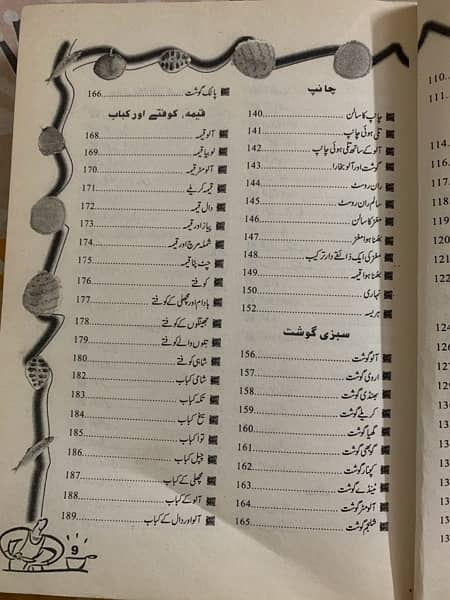 چانپ
چانپ کا سالن 140
تلی ہوئی چانپ 141
آلو کے ساتھ تلی ہوئی چانپ 142
گوشت اور آلو بخارا 143
ران روسٹ 144
سالم ران روسٹ 145
مغز کا سالن 146
بھنا ہوا مغز 147
مغز کی ایک ذائقے دار ترکیب 148
بھنا ہوا قیمہ 149
نہاری 150
ہریسہ 152
سبزی گوشت
آلو گوشت 156
اروی گوشت 157
بھنڈی گوشت 158
کریلے گوشت 159
گھیا گوشت 160
گوبھی گوشت 161
کچنار گوشت 162
ٹینڈے گوشت 163
آلو مٹر گوشت 164
شلجم گوشت 165
پالک گوشت 166
قیمہ، کوفتے اور کباب
آلو قیمہ 168
لوبیا قیمہ 169
آلو مٹر قیمہ 170
قیمہ کریلے 171
دال قیمہ 172
پیاز اور قیمہ 173
شملہ مرچ اور قیمہ 174
چٹ پٹا قیمہ 175
کوفتے 176
بادام اور مچھلی کے کوفتے 177
جھینگوں کے کوفتے 178
تلوں والے کوفتے 179
شاہی کوفتے 180
شامی کباب 182
تکہ کباب 183
سیخ کباب 184
توا کباب 185
چپل کباب 186
مچھلی کے کباب 187
آلو کے کباب 188
آلو اور دال کے کباب 189
9
110
111
114